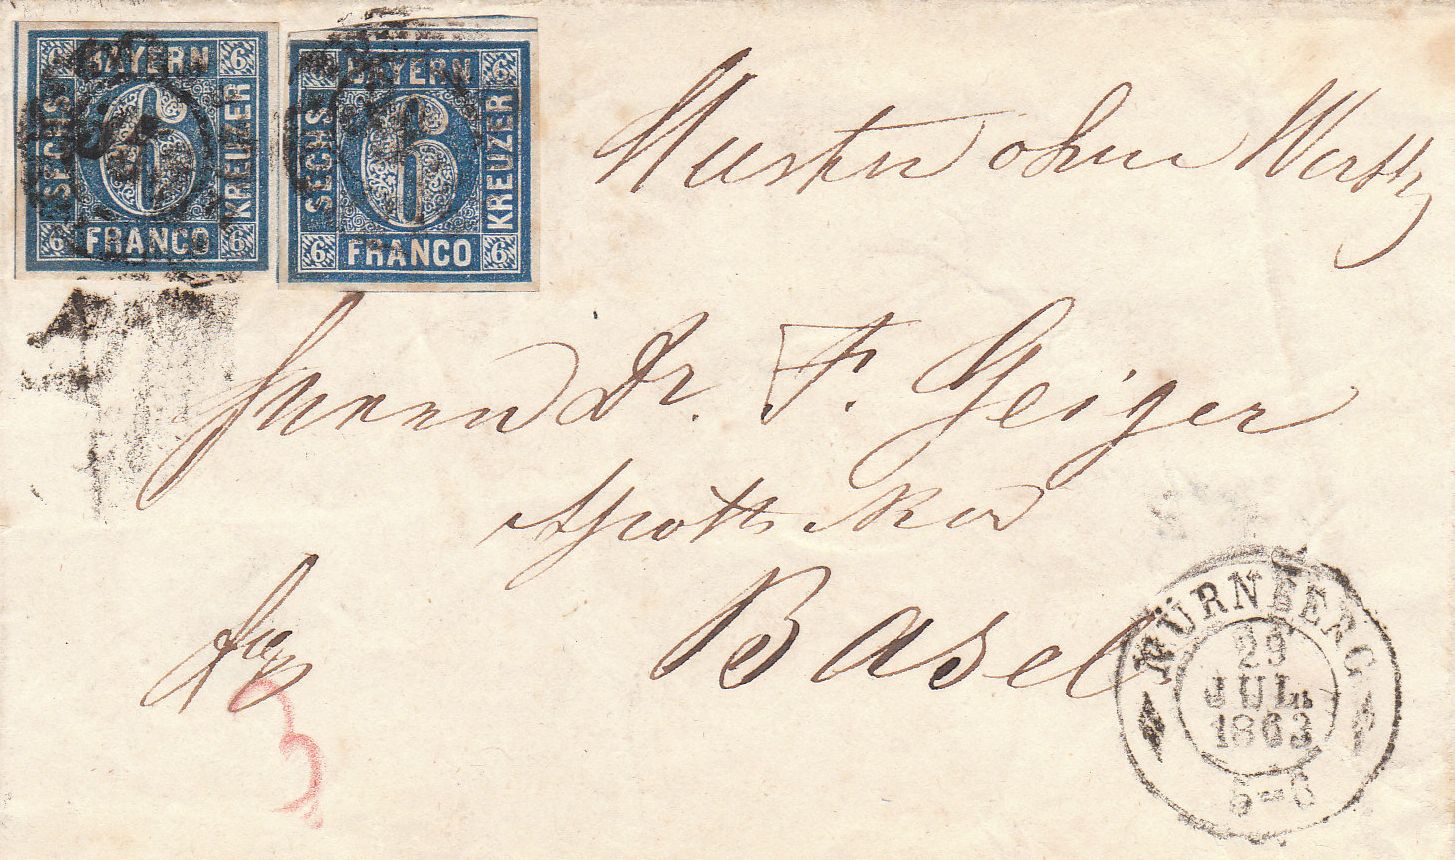 BAYERN
6 6
SECHS 6 KREUZER
6 FRANCO 6
BAYERN
6 6
SECHS 6 KREUZER
6 FRANCO 6
Muster ohne Werth
Herrn Dr. F. Geiger
Apotheker
Basel
3
NÜRNBERG
29
JUL.
1863
5-6